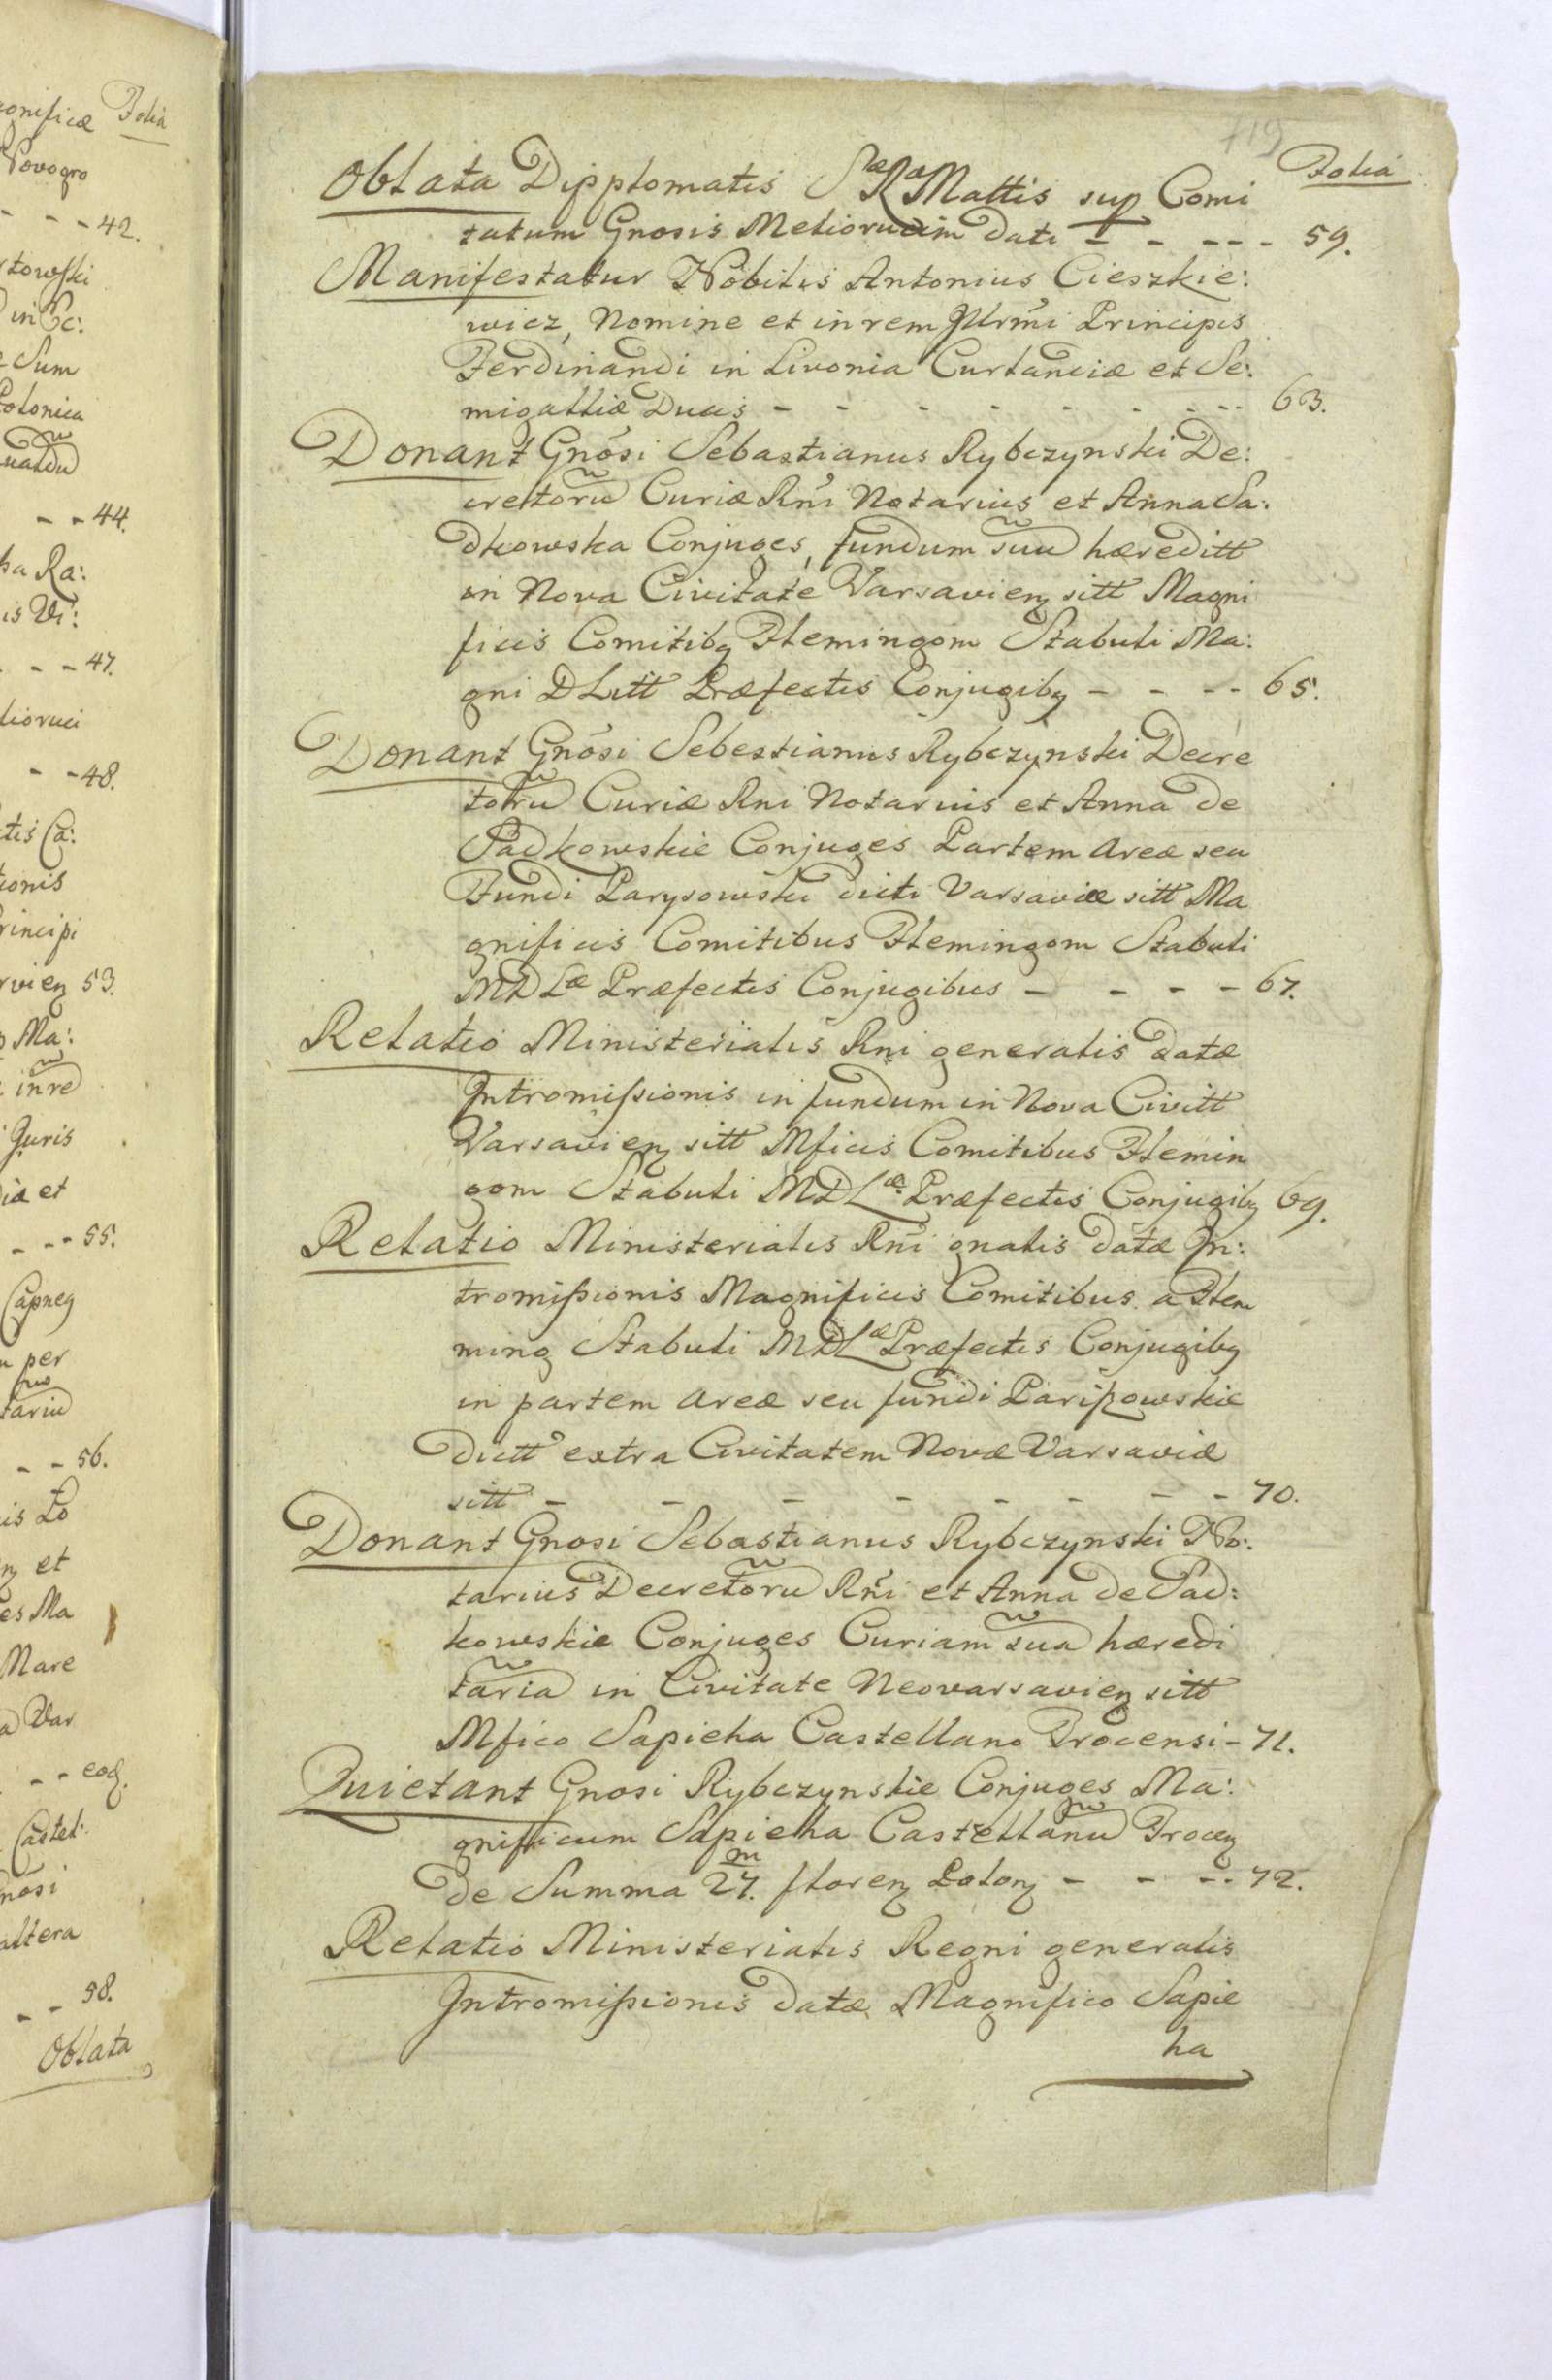 onificæ Folia
Novogro
- - - 42.
rtowski
in &c:
e Sum
Polonica
- - 44.
ha Ra:
is Vi:
- - - 47.
lioruci
- - 48.
tis Ca:
ionis
rincipi
53.
Ma:
inre
Juris
iæ et
- - - 55.
Capneg
per
tariu
- - 56.
is Lo
et
es Ma
Mare
a Var
- - eod.
Castel:
nosi
altera
- - 58.
Oblata
719
Folia
Oblata Dipplomatis Sæ Ræ Mattis sup Comi
tatum Gnosis Melioruciin dati - - - - - 59.
Manifestatur Nobilis Antonius Cieszkie:
wicz, Nomine et in rem Jllrmi Principis
Ferdinandi in Livonia Curlandiæ et Se:
migalliæ Ducis - - - - - - - - 63.
Donant Gnosi Sebastianus Rybczynski De:
cretoru Curiæ Rni Notarius et Anna Sa:
dkowska Conjuges, fundum suu hæreditt
in Nova Civitate Varsavien sitt Magni
ficis Comitibq Flemingom Stabuli Ma:
gni D Litt Præfectis Conjugibq - - - - 65.
Donant Gnosi Sebestianus Rybczynski Decre
toru Curiæ Rni Notarius et Anna de
Sadkowskie Conjuges Partem areæ seu
Fundi Parysowski dicti Varsaviæ sitt Ma
gnificis Comitibus Flemingom Stabuli
MD Læ Præfectis Conjugibus - - - - 67.
Relatio Ministerialis Rni generalis datæ
Intromissionis in fundum in Nova Civitt
Varsavien sitt Mficis Comitibus Flemin
gom Stabuli MD Læ Præfectis Conjugibq 69.
Relatio Ministerialis Rni gnalis datæ In:
tromissionis Magnificis Comitibus a Flem
ming Stabuli MD Læ Præfectis Conjugibq
in partem areæ seu fundi Parissowskie
dictt extra Civitatem Novæ Varsaviæ
sitt - - - - - - - - 70.
Donant Gnosi Sebastianus Rybczynski No:
tarius Decretoru Rni et Anna de Sad:
kowskie Conjuges Curiam sua hæredi
taria in Civitate Neovarsavien sitt
Mfico Sapieha Castellano Trocensi - 71.
Quietant Gnosi Rybczynskie Conjuges Ma:
gnificum Sapieha Castellanu Trocen
de Summa 27.m floren Polon - - - - 72.
Relatio Ministerialis Regni generalis
Intromissionis datæ Magnifico Sapie
ha